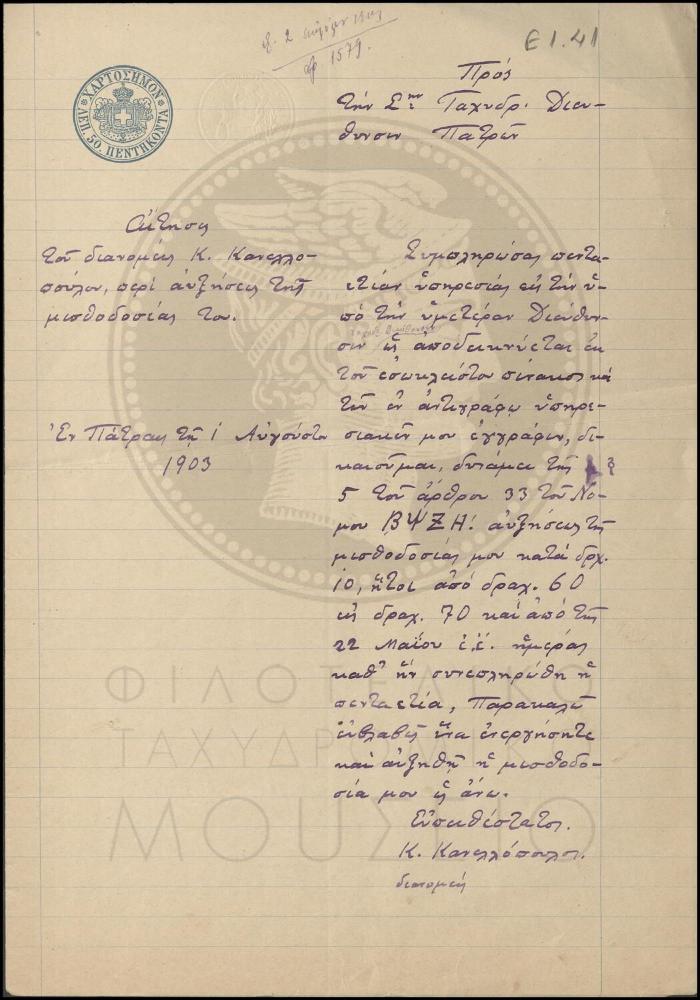 Ε1.41
αρ. 1579.
ΧΑΡΤΟΣΗΜΟΝ
ΛΕΠ. 50. ΠΕΝΤΗΚΟΝΤΑ
Πρὸς
τὴν Σην Ταχυδρ. Διευ-
θυνσιν Πατρῶν
Αἴτησις
τοῦ διανομέως Κ. Κανελλο-
πούλου, περὶ αὐξήσεως τῆς
μισθοδοσίας του.
Ἐν Πάτραις τῇ 1 Αὐγούστου
1903
Συμπληρώσας πεντα-
ετίαν ὑπηρεσίας εἰς τὴν ὑ-
πὸ τὴν ὑμετέραν Διεύθυν-
σιν ὡς ἀποδεικνύεται ἐκ
τοῦ ἐσωκλείστου πίνακος καὶ
τῶν ἐν ἀντιγράφῳ ὑπηρε-
σιακῶν μου ἐγγράφων, δι-
καιοῦμαι, δυνάμει τῆς §
5 τοῦ ἄρθρου 33 τοῦ Νό-
μου ΒΨΖΗ! αὐξήσεως τῆς
μισθοδοσίας μου κατὰ δρχ.
10, ἤτοι ἀπὸ δραχ. 60
εἰς δραχ. 70 καὶ ἀπὸ τῆς
22 Μαΐου ἐ.ἔ. ἡμέρας
καθ' ἣν συνεπληρώθη ἡ
πενταετία, Παρακαλῶ
εὐλαβῶς ἵνα ἐνεργήσητε
καὶ αὐξηθῇ ἡ μισθοδο-
σία μου ὡς ἄνω.
Εὐπειθέστατος.
Κ. Κανελλόπουλος.
διανομεὺς
ΦΙΛΟΤΕΛΙΚΟ
ΤΑΧΥΔΡΟΜΙΚΟ
ΜΟΥΣΕΙΟ